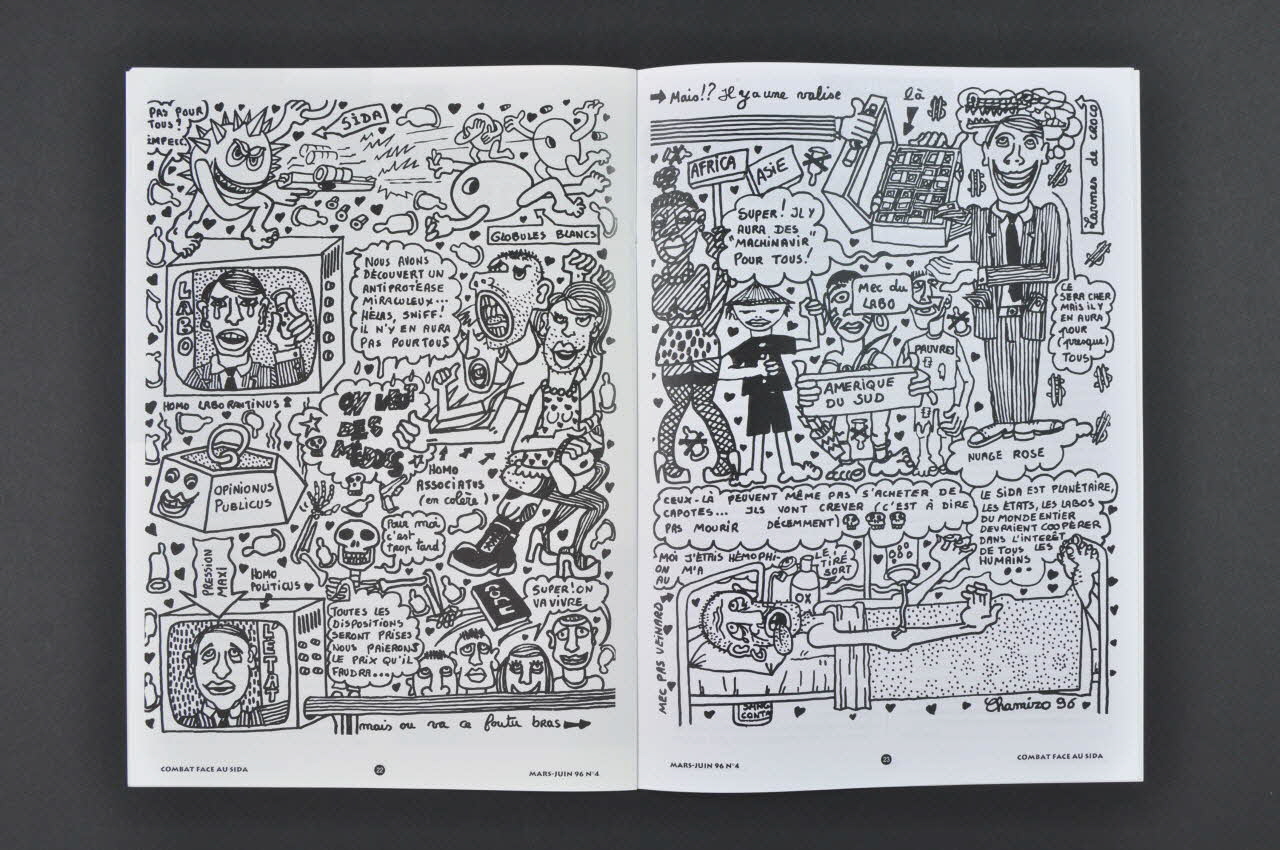 PAS POUR
TOUS!
SIDA
GLOBULES BLANCS
LABO
NOUS AVONS
DÉCOUVERT UN
ANTIPROTÉASE
MIRACULEUX...
HÉLAS, SNIFF!
IL N'Y EN AURA
PAS POUR TOUS
HOMO LABORANTINUS
HOMO
ASSOCIATUS
(en colère)
OPINIONUS
PUBLICUS
Pour moi
c'est
trop tard
PRESSION
MAXI
HOMO
POLITICUS
L'ETAT
TOUTES LES
DISPOSITIONS
SERONT PRISES
NOUS PAIERONS
LE PRIX QU'IL
FAUDRA...
SUPER! ON
VA VIVRE
mais ou va ce foutu bras
COMBAT FACE AU SIDA
22
MARS-JUIN 96 N°4
Mais!? Il y a une valise
là
Larmes de croco
AFRICA
ASIE
SUPER! IL Y
AURA DES
"MACHINAVIR"
POUR TOUS!
Mec du
LABO
PAUVRE
AMERIQUE
DU SUD
CE
SERA CHER
MAIS IL Y
EN AURA
POUR
(presque)
TOUS
NUAGE ROSE
CEUX-LÀ PEUVENT MÊME PAS S'ACHETER DE
CAPOTES... ILS VONT CREVER (C'EST À DIRE
PAS MOURIR DÉCEMMENT)
LE SIDA EST PLANÉTAIRE,
LES ÉTATS, LES LABOS
DU MONDE ENTIER
DEVRAIENT COOPÉRER
DANS L'INTERÊT
DE TOUS LES
HUMAINS...
MOI J'ÉTAIS HÉMOPHI-
LE!
ON M'A TIRÉ
AU SORT
OX
MEC PAS VEINARD
SANG
CONTA
Chamizo 96
MARS-JUIN 96 N°4
23
COMBAT FACE AU SIDA